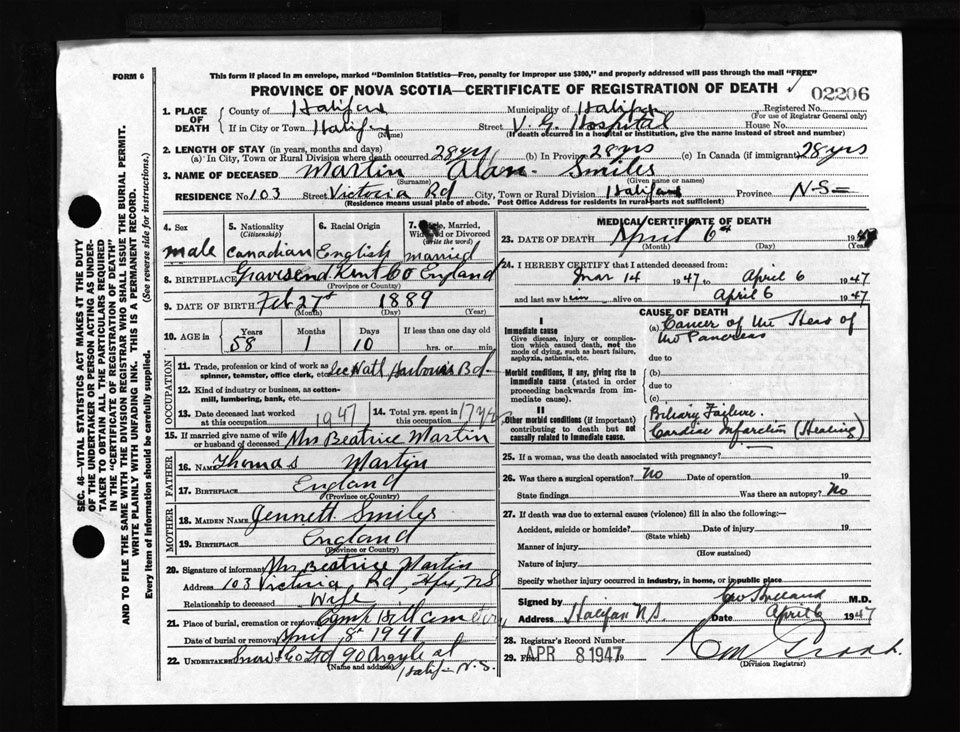 FORM 6
This form if placed in an envelope, marked "Dominion Statistics—Free, penalty for improper use $300," and properly addressed will pass through the mail "FREE"
PROVINCE OF NOVA SCOTIA—CERTIFICATE OF REGISTRATION OF DEATH
02206
1. PLACE OF DEATH
County of Halifax Municipality of Halifax Registered No.
(For use of Registrar General only)
If in City or Town Halifax Street V. G. Hospital House No.
(Name) (If death occurred in a hospital or institution, give the name instead of street and number)
2. LENGTH OF STAY (in years, months and days)
(a) In City, Town or Rural Division where death occurred 28 yrs (b) In Province 28 yrs (c) In Canada (if immigrant) 28 yrs
3. NAME OF DECEASED Martin Alan Smiles
(Surname) (Given name or names)
RESIDENCE No. 103 Street Victoria Rd City, Town or Rural Division Halifax Province N-S-
(Residence means usual place of abode. Post Office Address for residents in rural parts not sufficient)
4. Sex male
5. Nationality (Citizenship) Canadian
6. Racial Origin English
7. Single, Married, Widowed or Divorced (write the word) married
8. BIRTHPLACE Gravesend Kent Co England
(Province or County)
9. DATE OF BIRTH Feb 27th 1889
(Month) (Day) (Year)
10. AGE in Years Months Days If less than one day old
58 1 10 hrs. or min.
OCCUPATION
11. Trade, profession or kind of work as spinner, teamster, office clerk, etc. Sec Natl Harbours Bd.
12. Kind of industry or business, as cotton-mill, lumbering, bank, etc.
13. Date deceased last worked at this occupation 1947
14. Total yrs. spent in this occupation 17 yrs
15. If married give name of wife or husband of deceased Mrs Beatrice Martin
FATHER
16. NAME Thomas Martin
17. BIRTHPLACE England
(Province or County)
MOTHER
18. MAIDEN NAME Jennett Smiles
19. BIRTHPLACE England
(Province or Country)
20. Signature of informant Mrs Beatrice Martin
Address 103 Victoria Rd, Hfx, N S
Relationship to deceased Wife
21. Place of burial, cremation or removal Camp Hill Cemetery
Date of burial or removal April 8th 1947
22. UNDERTAKER Snow & Co Ltd 90 Argyle st
(Name and address) Halifax N.S.
MEDICAL CERTIFICATE OF DEATH
23. DATE OF DEATH April 6th 1947
(Month) (Day) (Year)
24. I HEREBY CERTIFY that I attended deceased from:
Mar 14 1947 to April 6 1947
and last saw him alive on April 6 1947
CAUSE OF DEATH
I
Immediate cause
Give disease, injury or complication which caused death, not the mode of dying, such as heart failure, asphyxia, asthenia, etc.
(a) Cancer of the Head of the Pancreas
due to
Morbid conditions, if any, giving rise to immediate cause (stated in order proceeding backwards from immediate cause).
(b)
due to
(c)
II
Other morbid conditions (if important) contributing to death but not causally related to immediate cause.
Biliary Failure.
Cardiac Infarction (Healing)
25. If a woman, was the death associated with pregnancy?
26. Was there a surgical operation? No Date of operation 19
State findings Was there an autopsy? No
27. If death was due to external causes (violence) fill in also the following:—
Accident, suicide or homicide? Date of injury 19
(State which)
Manner of injury
(How sustained)
Nature of injury
Specify whether injury occurred in industry, in home, or in public place
Signed by M.D.
Address Halifax N.S. Date April 6 1947
28. Registrar's Record Number
29. Filed APR 8 1947 19
(Division Registrar)
SEC. 46—VITAL STATISTICS ACT MAKES IT THE DUTY
OF THE UNDERTAKER OR PERSON ACTING AS UNDER-
TAKER TO OBTAIN ALL THE PARTICULARS REQUIRED
IN THE "CERTIFICATE OF REGISTRATION OF DEATH"
AND TO FILE THE SAME WITH THE DIVISION REGISTRAR WHO SHALL ISSUE THE BURIAL PERMIT.
WRITE PLAINLY WITH UNFADING INK. THIS IS A PERMANENT RECORD.
Every item of information should be carefully supplied. (See reverse side for instructions.)